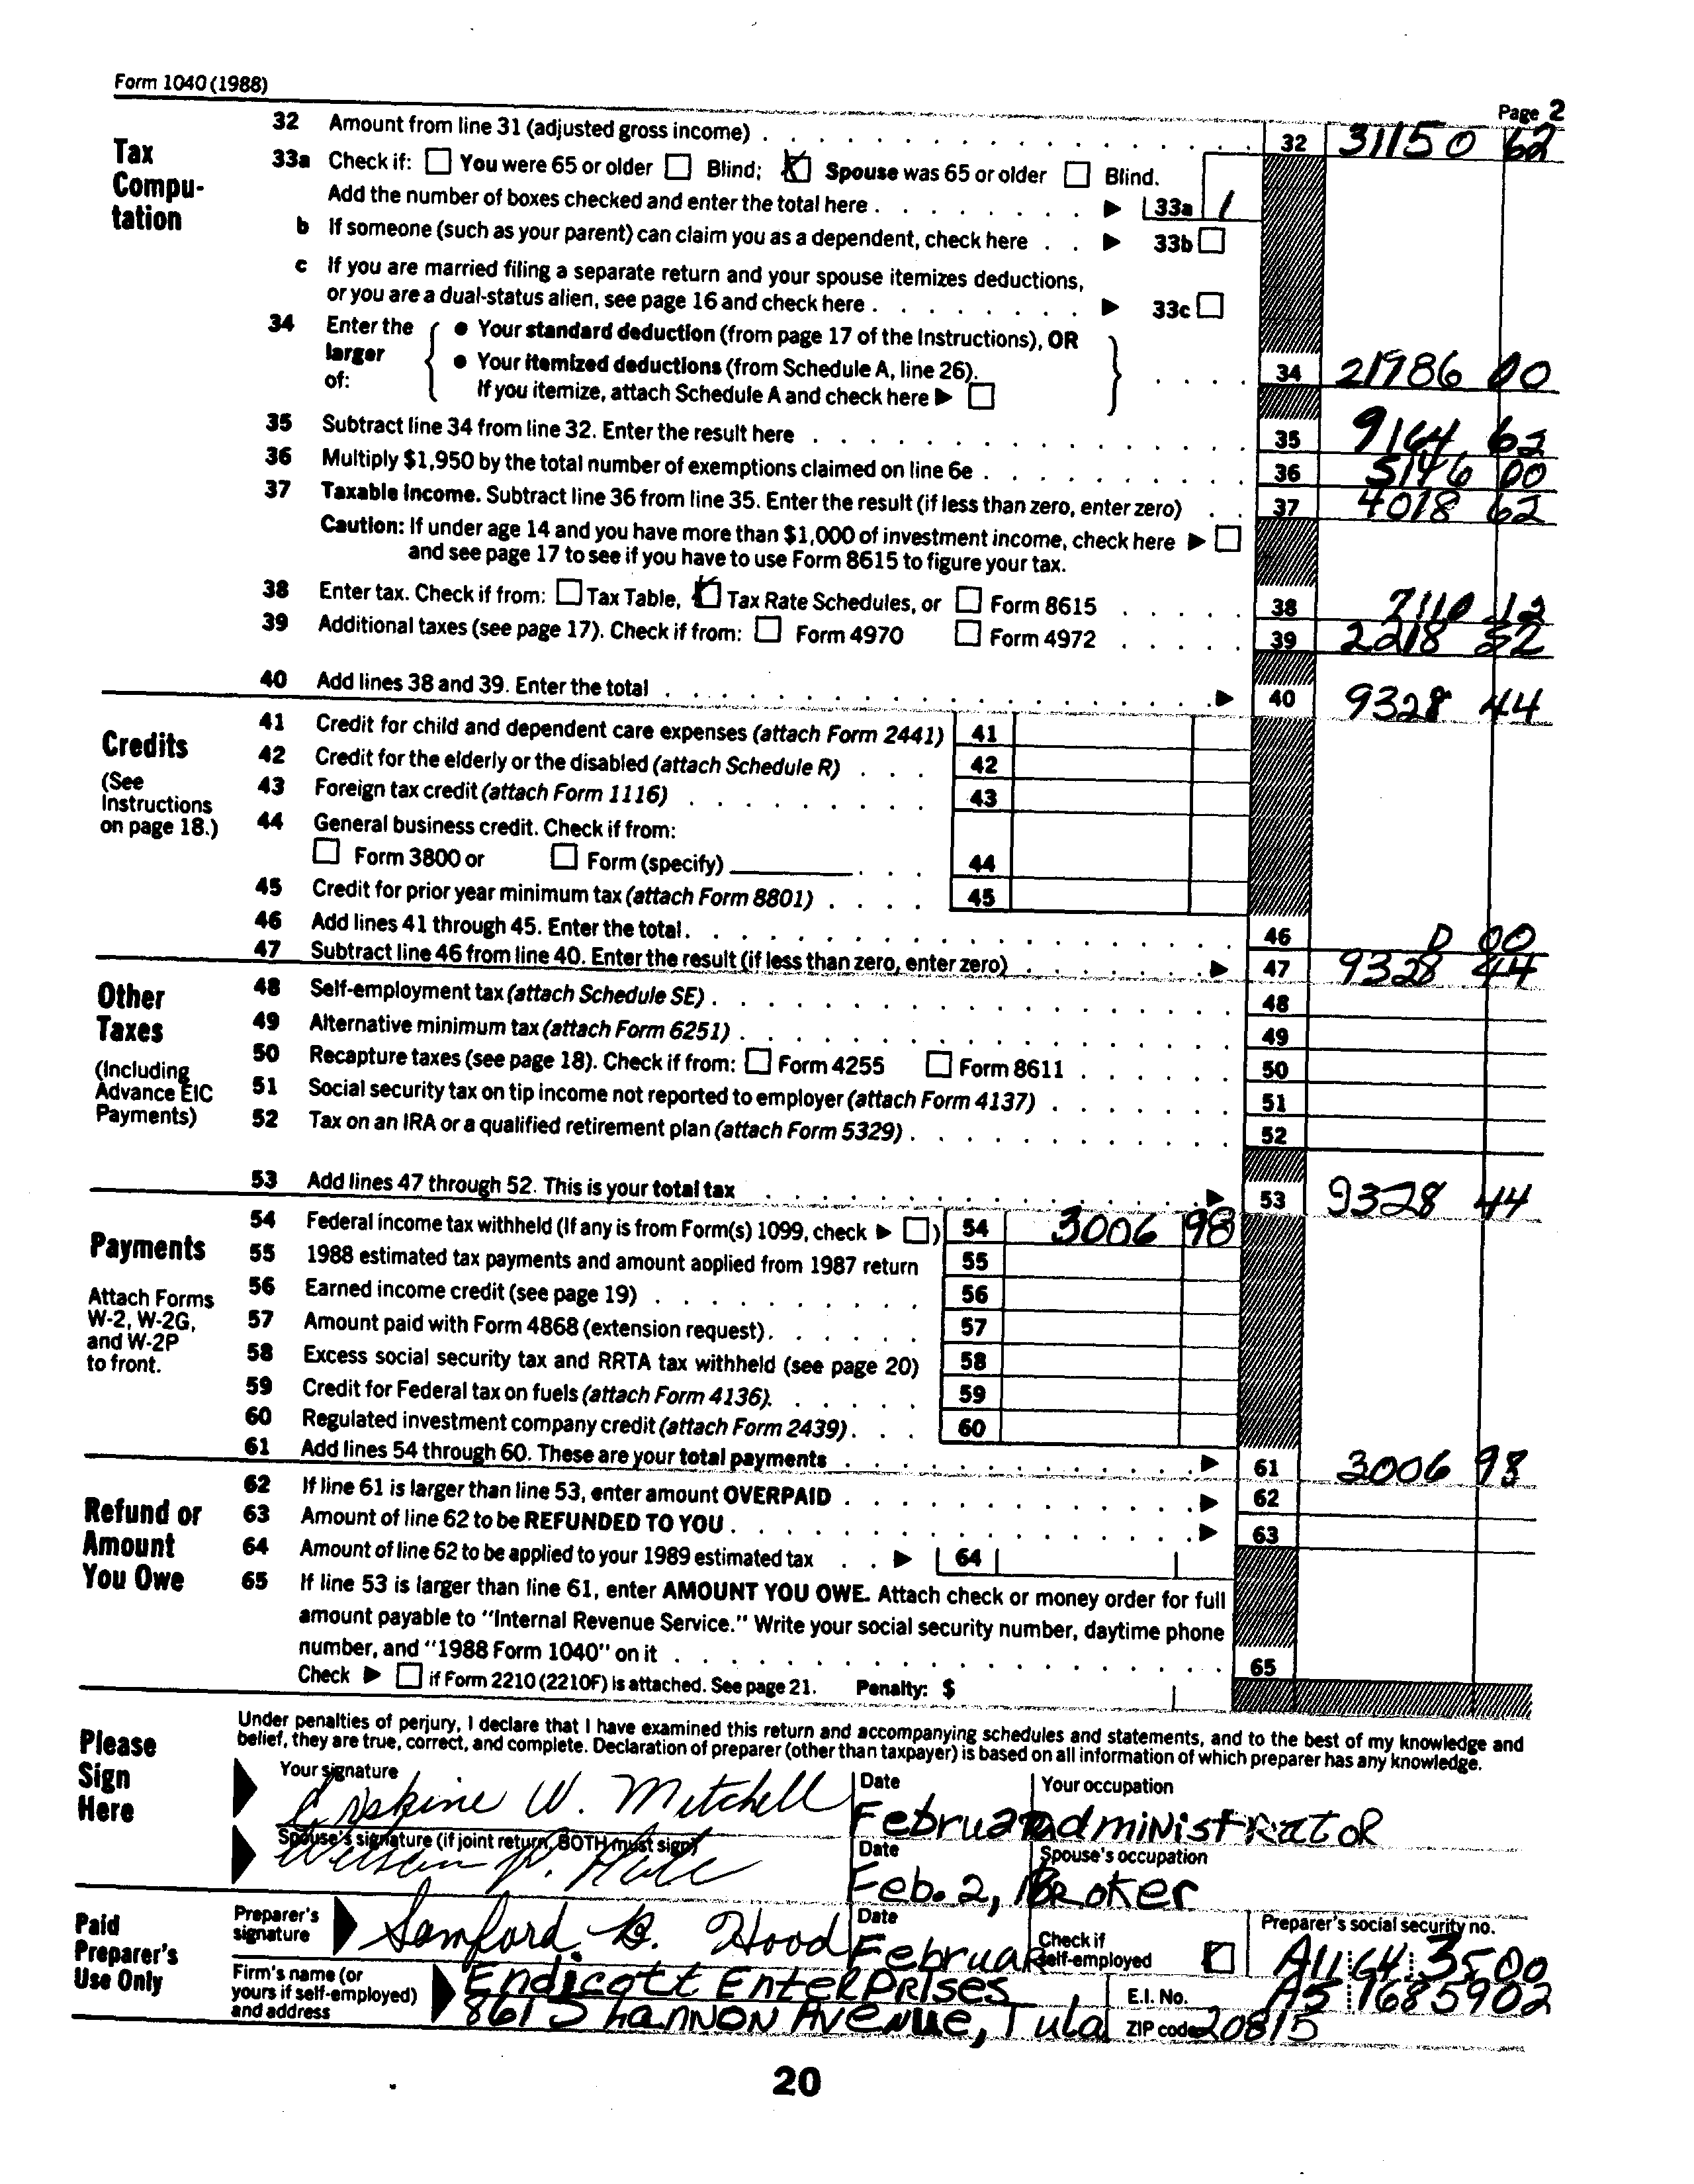 Form 1040 (1988)
Page 2
Tax Compu-tation
32 Amount from line 31 (adjusted gross income) 32 31150 62
33a Check if: You were 65 or older Blind; Spouse was 65 or older Blind.
Add the number of boxes checked and enter the total here 33a 1
b If someone (such as your parent) can claim you as a dependent, check here 33b
c If you are married filing a separate return and your spouse itemizes deductions,
or you are a dual-status alien, see page 16 and check here 33c
34 Enter the larger of:
• Your standard deduction (from page 17 of the Instructions), OR
• Your itemized deductions (from Schedule A, line 26).
If you itemize, attach Schedule A and check here
34 21986 00
35 Subtract line 34 from line 32. Enter the result here 35 9164 62
36 Multiply $1,950 by the total number of exemptions claimed on line 6e 36 5146 00
37 Taxable income. Subtract line 36 from line 35. Enter the result (if less than zero, enter zero) 37 4018 62
Caution: If under age 14 and you have more than $1,000 of investment income, check here
and see page 17 to see if you have to use Form 8615 to figure your tax.
38 Enter tax. Check if from: Tax Table, Tax Rate Schedules, or Form 8615 38 7110 12
39 Additional taxes (see page 17). Check if from: Form 4970 Form 4972 39 2218 32
40 Add lines 38 and 39. Enter the total 40 9328 44
Credits
(See Instructions on page 18.)
41 Credit for child and dependent care expenses (attach Form 2441) 41
42 Credit for the elderly or the disabled (attach Schedule R) 42
43 Foreign tax credit (attach Form 1116) 43
44 General business credit. Check if from:
Form 3800 or Form (specify) 44
45 Credit for prior year minimum tax (attach Form 8801) 45
46 Add lines 41 through 45. Enter the total 46 0 00
47 Subtract line 46 from line 40. Enter the result (if less than zero, enter zero) 47 9328 44
Other Taxes
(Including Advance EIC Payments)
48 Self-employment tax (attach Schedule SE) 48
49 Alternative minimum tax (attach Form 6251) 49
50 Recapture taxes (see page 18). Check if from: Form 4255 Form 8611 50
51 Social security tax on tip income not reported to employer (attach Form 4137) 51
52 Tax on an IRA or a qualified retirement plan (attach Form 5329) 52
53 Add lines 47 through 52. This is your total tax 53 9328 44
Payments
Attach Forms W-2, W-2G, and W-2P to front.
54 Federal income tax withheld (If any is from Form(s) 1099, check ) 54 3006 98
55 1988 estimated tax payments and amount applied from 1987 return 55
56 Earned income credit (see page 19) 56
57 Amount paid with Form 4868 (extension request) 57
58 Excess social security tax and RRTA tax withheld (see page 20) 58
59 Credit for Federal tax on fuels (attach Form 4136) 59
60 Regulated investment company credit (attach Form 2439) 60
61 Add lines 54 through 60. These are your total payments 61 3006 98
Refund or Amount You Owe
62 If line 61 is larger than line 53, enter amount OVERPAID 62
63 Amount of line 62 to be REFUNDED TO YOU 63
64 Amount of line 62 to be applied to your 1989 estimated tax 64
65 If line 53 is larger than line 61, enter AMOUNT YOU OWE. Attach check or money order for full
amount payable to "Internal Revenue Service." Write your social security number, daytime phone
number, and "1988 Form 1040" on it 65
Check if Form 2210 (2210F) is attached. See page 21. Penalty: $
Please Sign Here
Under penalties of perjury, I declare that I have examined this return and accompanying schedules and statements, and to the best of my knowledge and
belief, they are true, correct, and complete. Declaration of preparer (other than taxpayer) is based on all information of which preparer has any knowledge.
Your signature Date Your occupation
Erskine W. Mitchell Februa administrator
Spouse's signature (if joint return, BOTH must sign) Date Spouse's occupation
Feb. 2, Broker
Paid Preparer's Use Only
Preparer's signature Samford B. Hood
Date Februa
Check if self-employed
Preparer's social security no. A11 64 3500
Firm's name (or yours if self-employed) and address
Endicott Enterprises
8613 Shannon Avenue, Tula
E.I. No. A5 1685902
ZIP code 20815
20